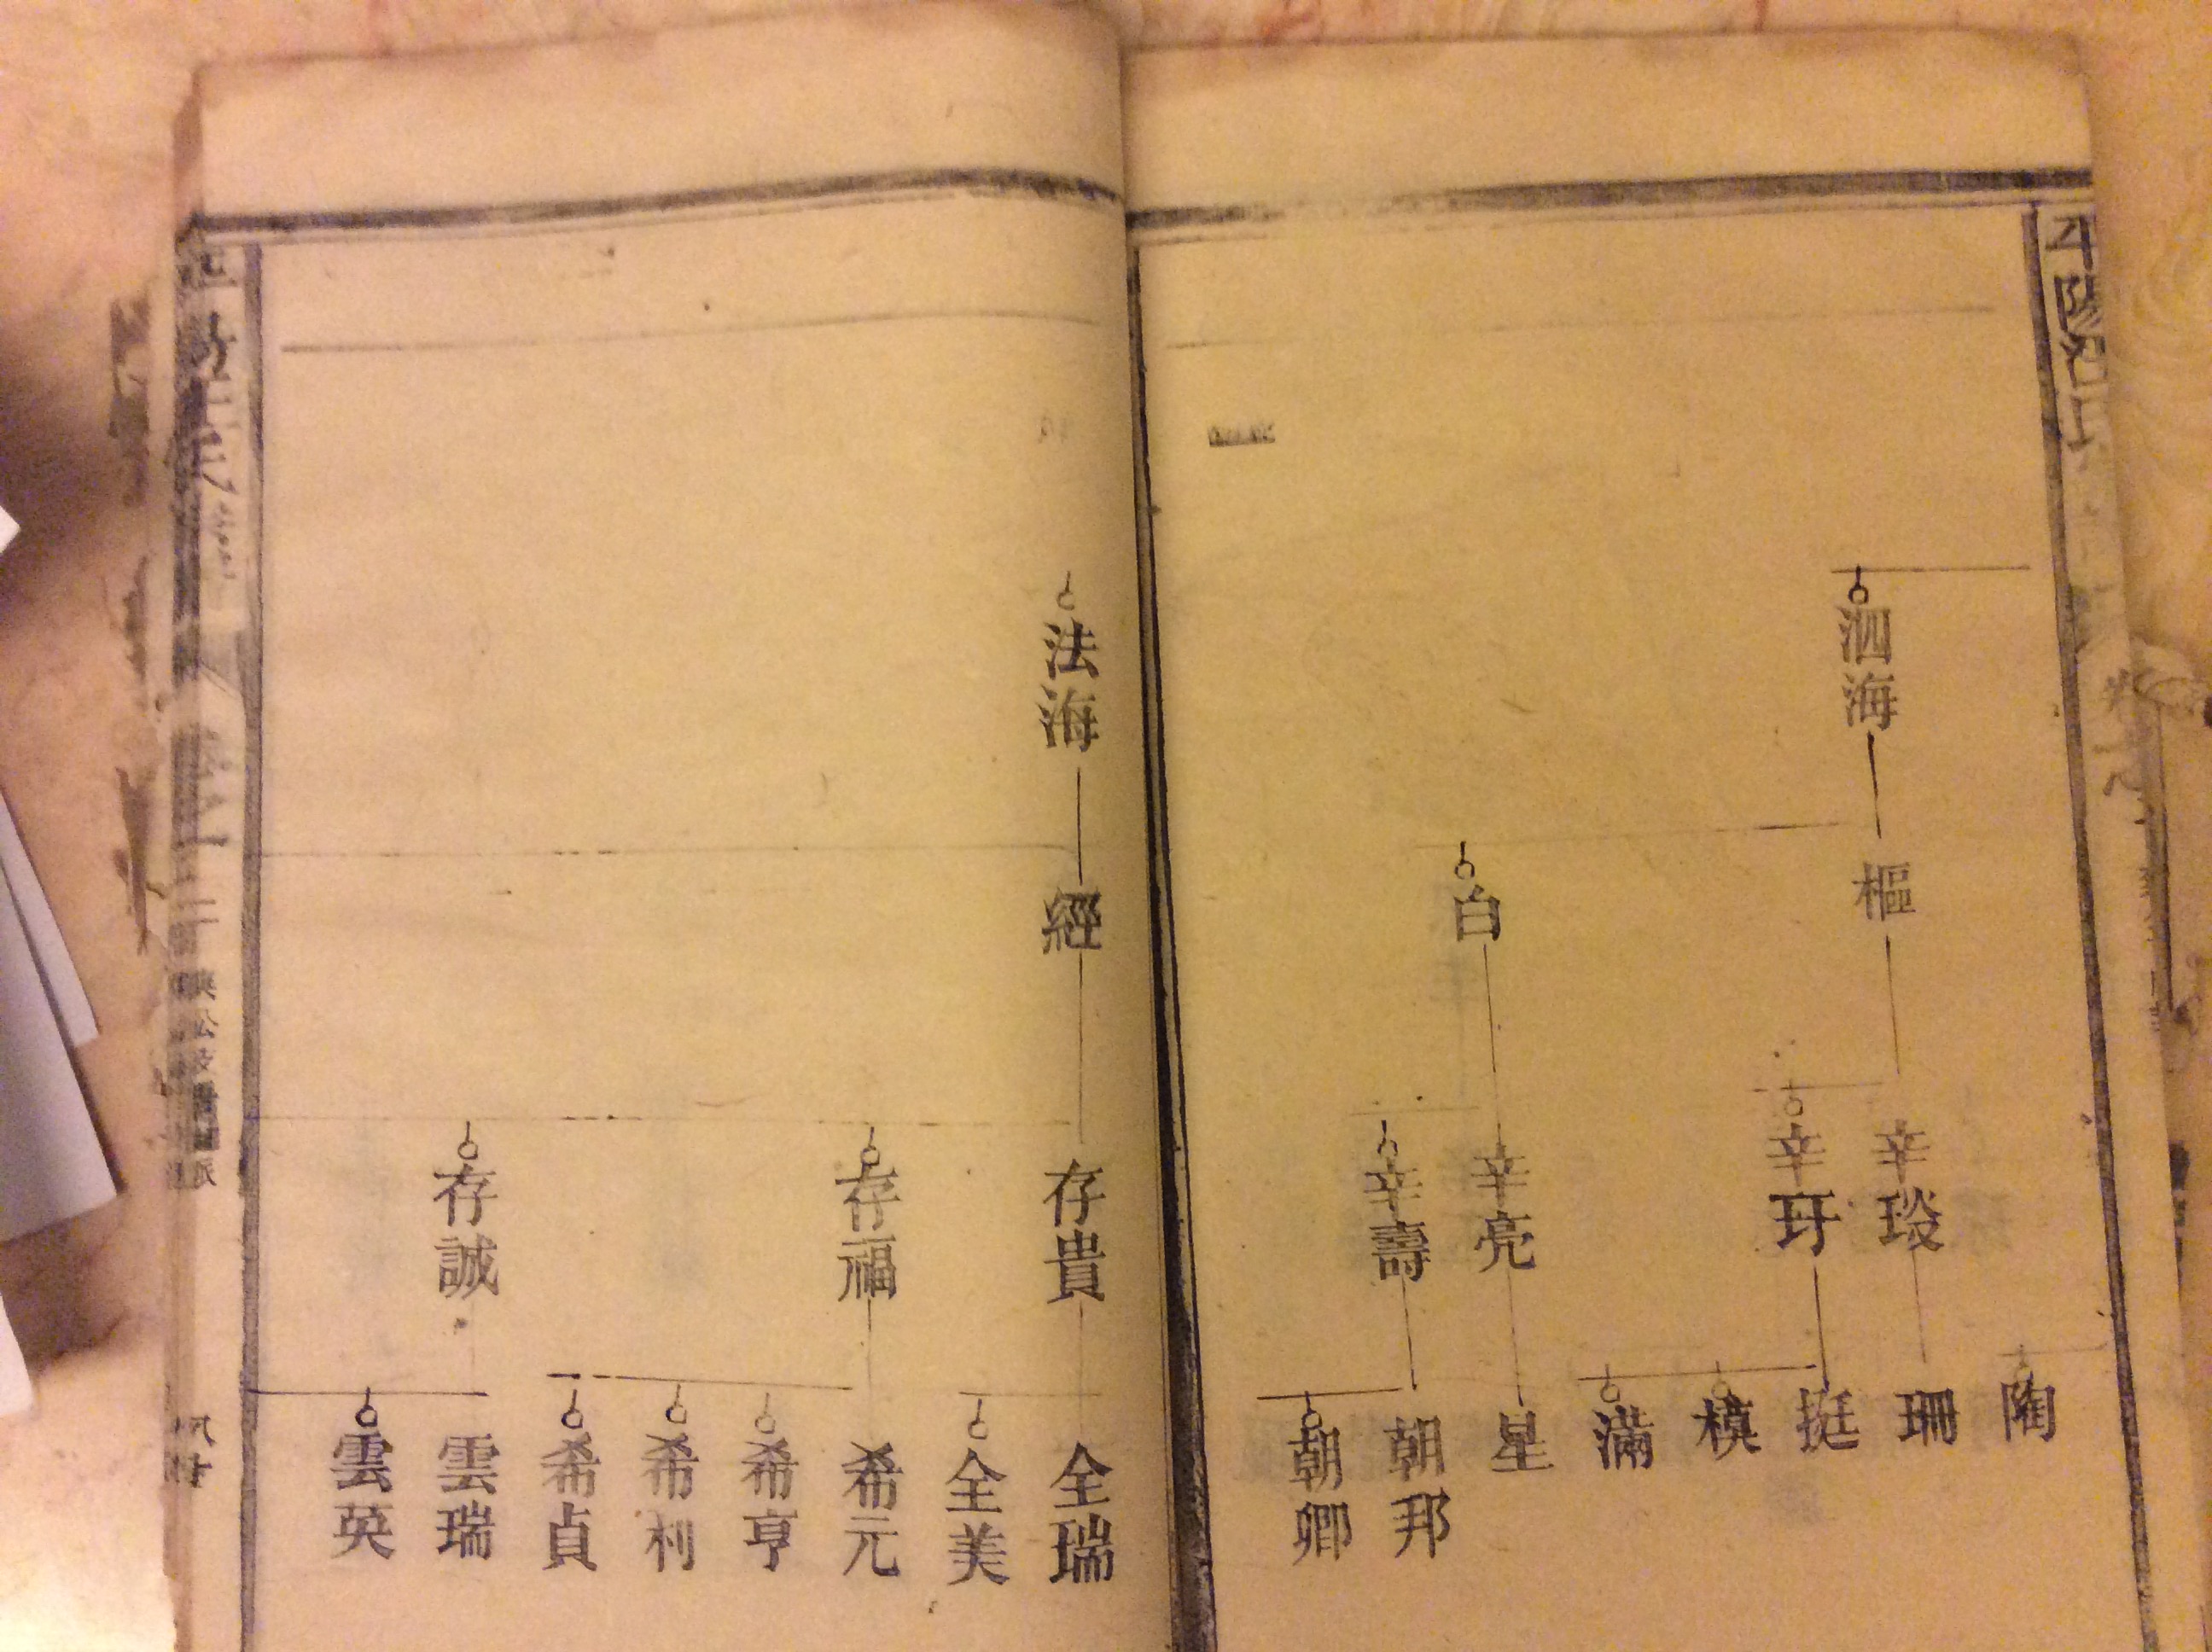 平陽汪氏
泗海
樞
白
辛琰
辛玗
辛亮
辛壽
陶
珊
挺
模
滿
星
朝邦
朝卿
法海
經
存貴
存福
存誠
全瑞
全美
希元
希亨
希利
希貞
雲瑞
雲英